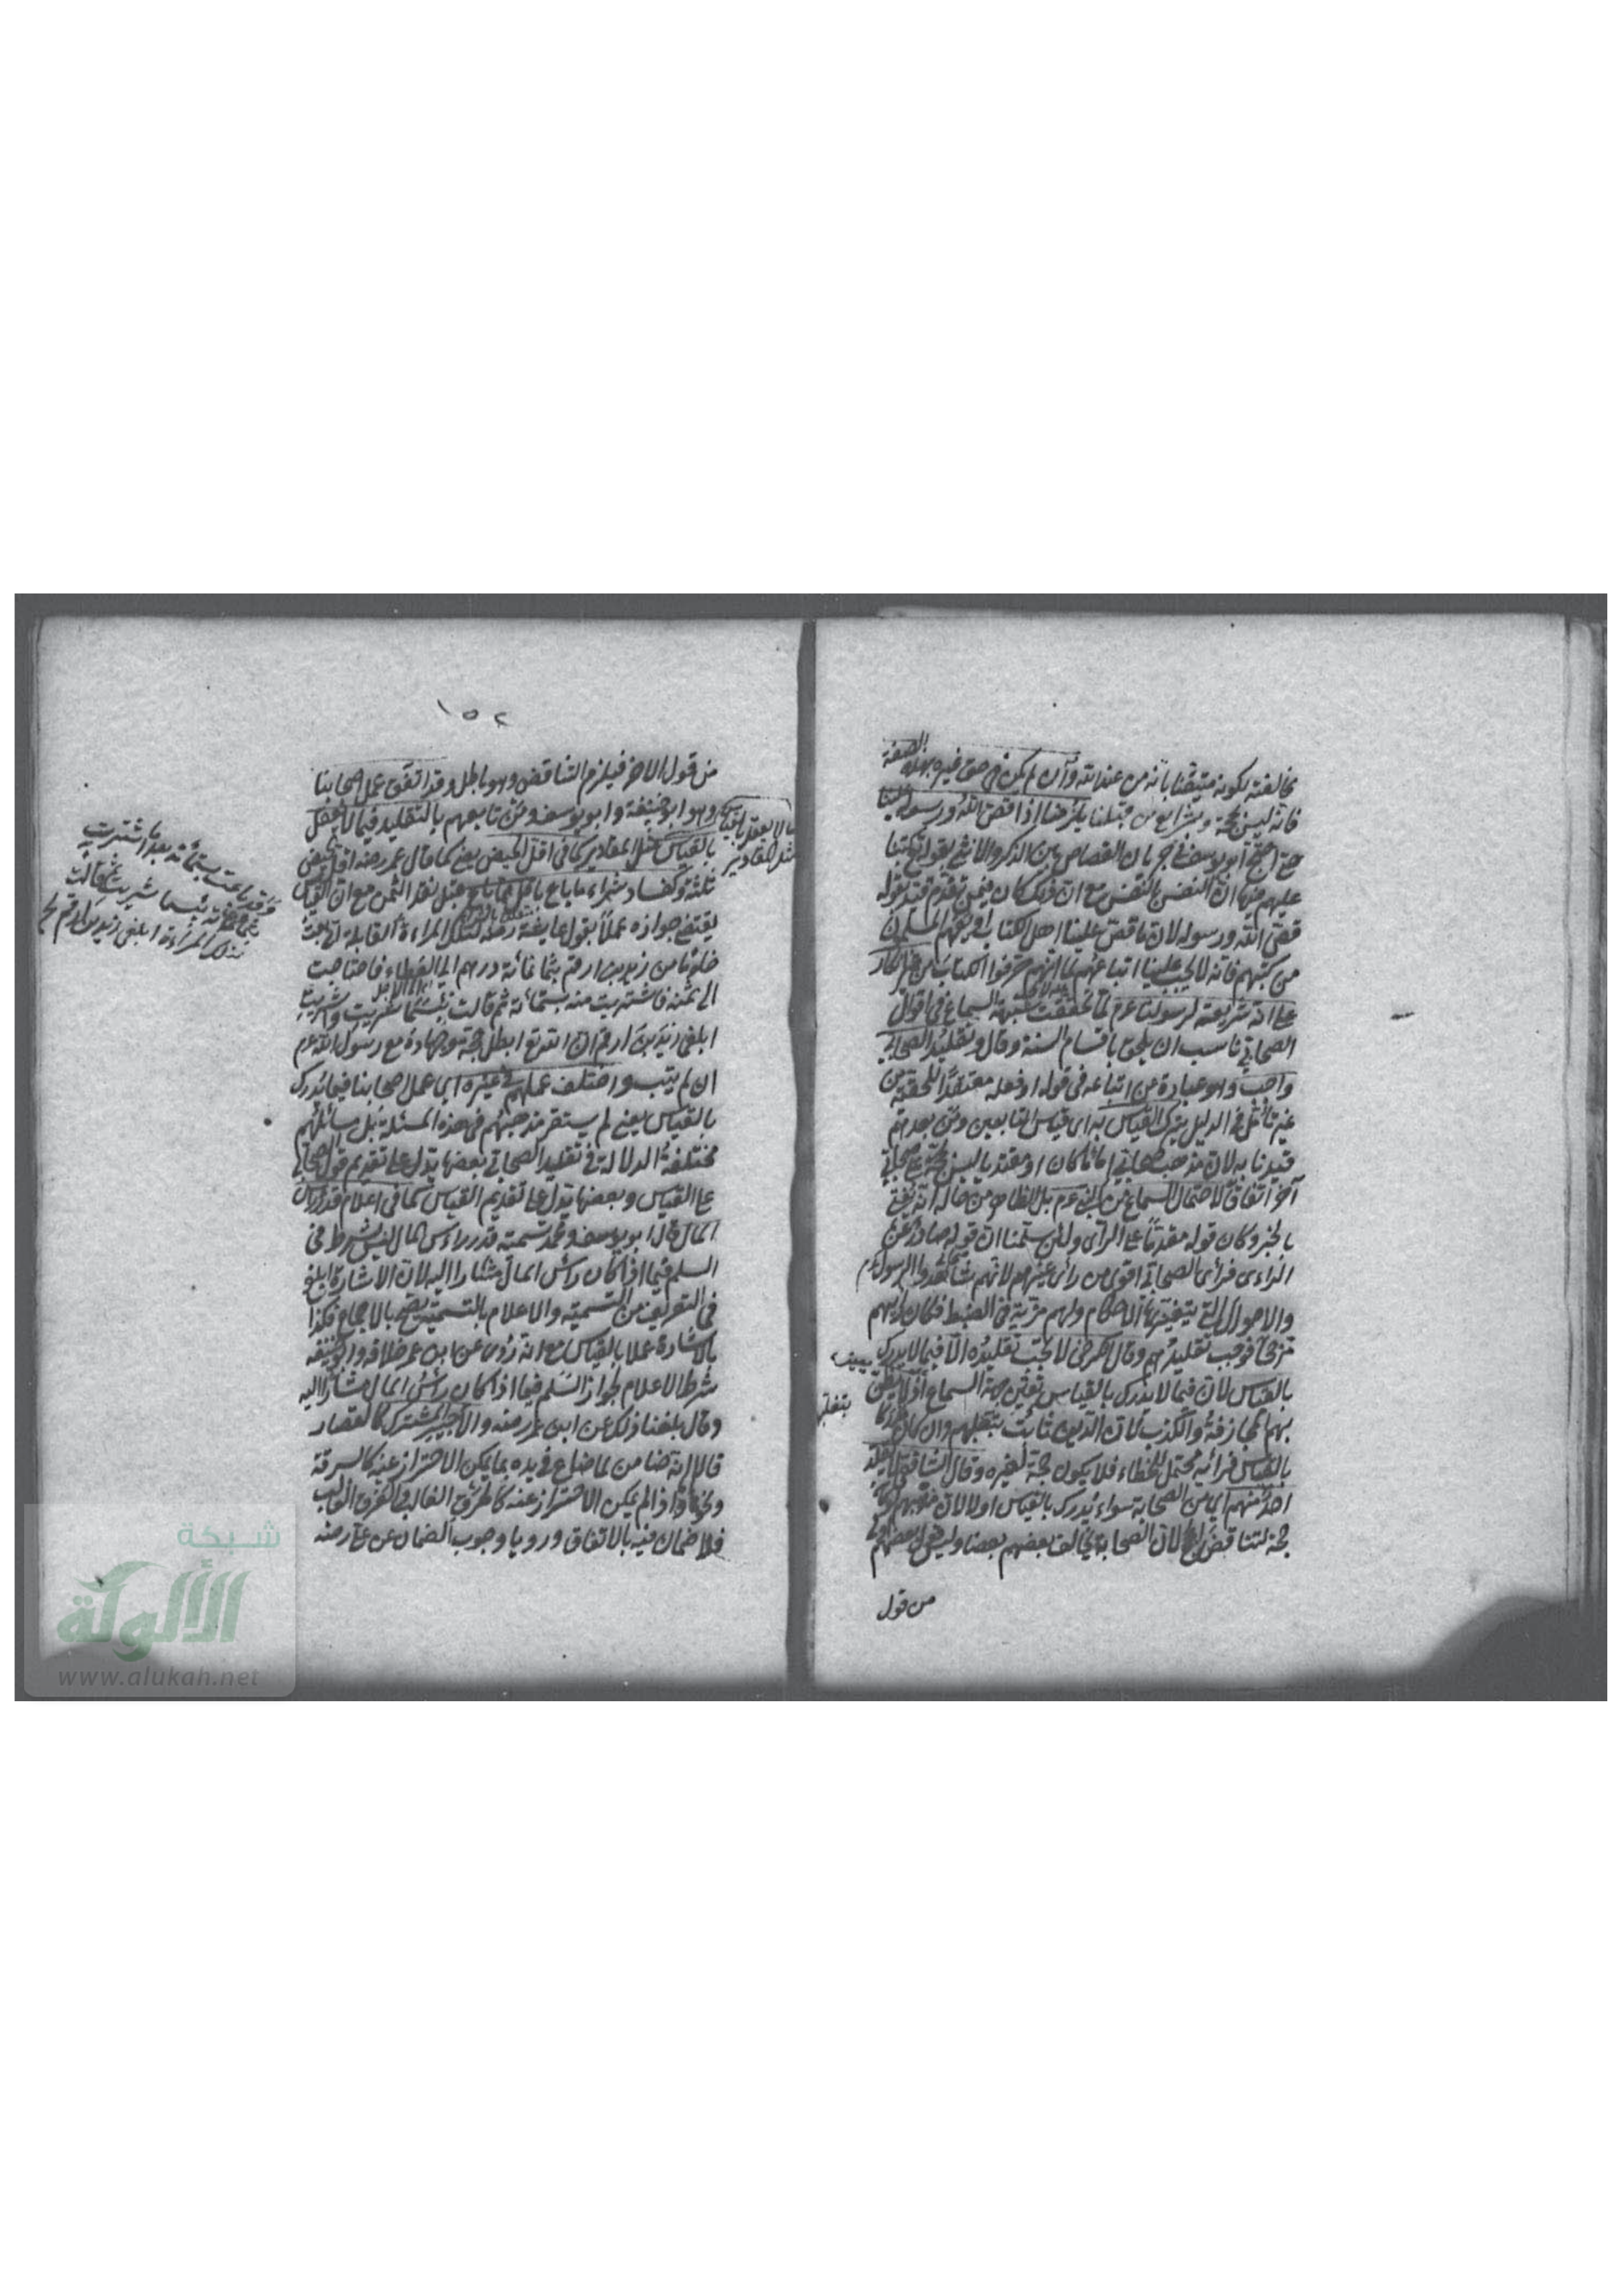 مخالفته لكونه متيقنا بانه من عند الله وان لم يكن في حق غيره بهذه الصفة
فانه ليس بحجة وشرايع من قبلنا يلزمنا اذا قص الله ورسوله علينا
حتى احتج ابو يوسف في جريان القصاص بين الذكر والانثى بقوله وكتبنا
عليهم فيها ان النفس بالنفس مع ان ذلك كان فيمن تقدم قيد بقوله
قص الله ورسوله لان ما قص علينا اهل الكتاب او فهم المسلمون
من كتبهم فانه لا يجب علينا اتباعهم لما انهم حرفوا الكتاب من غير انكار
على انه شريعة لرسولنا عم لما تحققت شبهة السماع في اقوال
الصحابي ناسب ان يلحق باقسام السنة وقال وتقليد الصحابي
واجب وهو عبارة عن اتباعه في قوله او فعله معتقدا للحقية من
غير تأمل في الدليل يترك القياس به اى قياس التابعين ومن بعدهم
قيدنا به لان مذهب الصحابي اماما كان او مفتيا ليس بحجة على صحابي
آخر اتفاقا لاحتمال السماع من النبي عم بل الظاهر من حاله انه يفتي
بالخبر وكان قوله مقدما على الرأي ولئن سلمنا ان قوله صادر عن
الرأى فرأى الصحابي اقوى من رأى غيرهم لانهم شاهدوا الرسول عم
والاحوال التي يتغير بها الاحكام ولهم مزية في الضبط فكان لرأيهم
مزجى فوجب تقليدهم وقال الكرخي لا يجب تقليده الا فيما لا يدرك
بالقياس لان فيما لا يدرك بالقياس تعين جهة السماع اذ لا يظن
بهم المجازفة والكذب لان الدين ثابت بنقلهم وان كان مدركا
بالقياس فرأيه محتمل للخطاء فلا يكون حجة لغيره وقال الشافعي لا يقلد
احد منهم اى من الصحابة سواء يدرك بالقياس او لا لان قولهم لو كان
حجة لتناقض الحجج لان الصحابة يخالف بعضهم بعضا وليس قول بعضهم اولى
من قول
بنقلهم
١٥٢
من قول الاخر فيلزم التناقض وهو باطل وقد اتفق عمل اصحابنا
وهو ابو حنيفة وابو يوسف ومن تابعهم بالتقليد فيما لا يعقل
بالقياس مثل المقادير كما في اقل الحيض يعني كما قال عمر رضه اقل الحيض
ثلثة وكفساد شراء ما باع باقل مما باع قبل نقد الثمن مع ان القياس
يقتضي جوازه عملا بقول عايشة رضه لتلك المراءة القابلة اني بعت
خادما من زيد بن ارقم بثمانمائة درهم الى العطاء فاحتاجت
الى ثمنه فاشتريت منه بستمائة ثم قالت بئسما شريت واشتريت
ابلغي زيد بن ارقم ان الله تع ابطل حجه وجهاده مع رسول الله عم
ان لم يتب واختلف عملهم في غيره اى عمل اصحابنا فيما يدرك
بالقياس يعني لم يستقر مذهبهم في هذه المسئلة بل مسائلهم
مختلفة الدلالة في تقليد الصحابي بعضها يدل على تقديم قول الصحابي
على القياس وبعضها يدل على تقديم القياس كما في اعلام قدر رأس
المال قال ابو يوسف ومحمد تسمية قدر رأس المال ليس بشرط في
السلم فيما اذا كان رأس المال مشارا اليه لان الاشارة ابلغ
في التعريف من التسمية والاعلام بالتسمية يصح بالاجماع فكذا
بالاشارة عملا بالقياس مع انه روى عن ابن عمر خلافه وابو حنيفة
شرط الاعلام لجواز السلم فيما اذا كان رأس المال مشارا اليه
وقال بلغنا ذلك عن ابن عمر رضه والاجير المشترك كالقصار
قالا انه ضامن لما ضاع في يده بما يمكن الاحتراز عنه كالسرقة
ونحوها واذا لم يكن الاحتراز عنه كالحرق الغالب والغرق الغالب
فلا ضمان فيه بالاتفاق ورويا وجوب الضمان عن على رضه
ما لا يعقل بالقياس
مثل المقادير